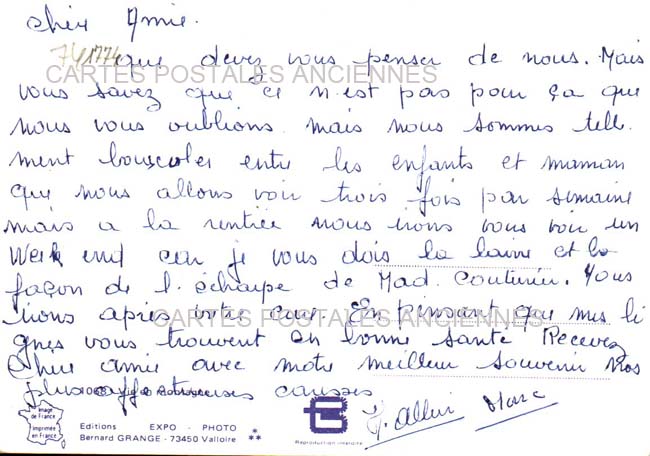 Chère Amie.
741774 que devez vous penser de nous. Mais
CARTES POSTALES ANCIENNES
vous savez que ce n'est pas pour ça que
nous vous oublions. mais nous sommes telle
ment bousculer entre les enfants et maman
que nous allons voir trois fois par semaine
mais a la rentrée nous irons vous voir un
Week end car je vous dois la laine et la
façon de l'écharpe de Mad. Nous
irons après votre En pensant que mes li
CARTES POSTALES ANCIENNES
gnes vous trouvent en bonne santé Recevez
Chère amie avec notre meilleur souvenir Nos
plus affectueuses caresses
Image
de France
Imprimée
en France
Editions EXPO - PHOTO *
Bernard GRANGE - 73450 Valloire **
Reproduction interdite